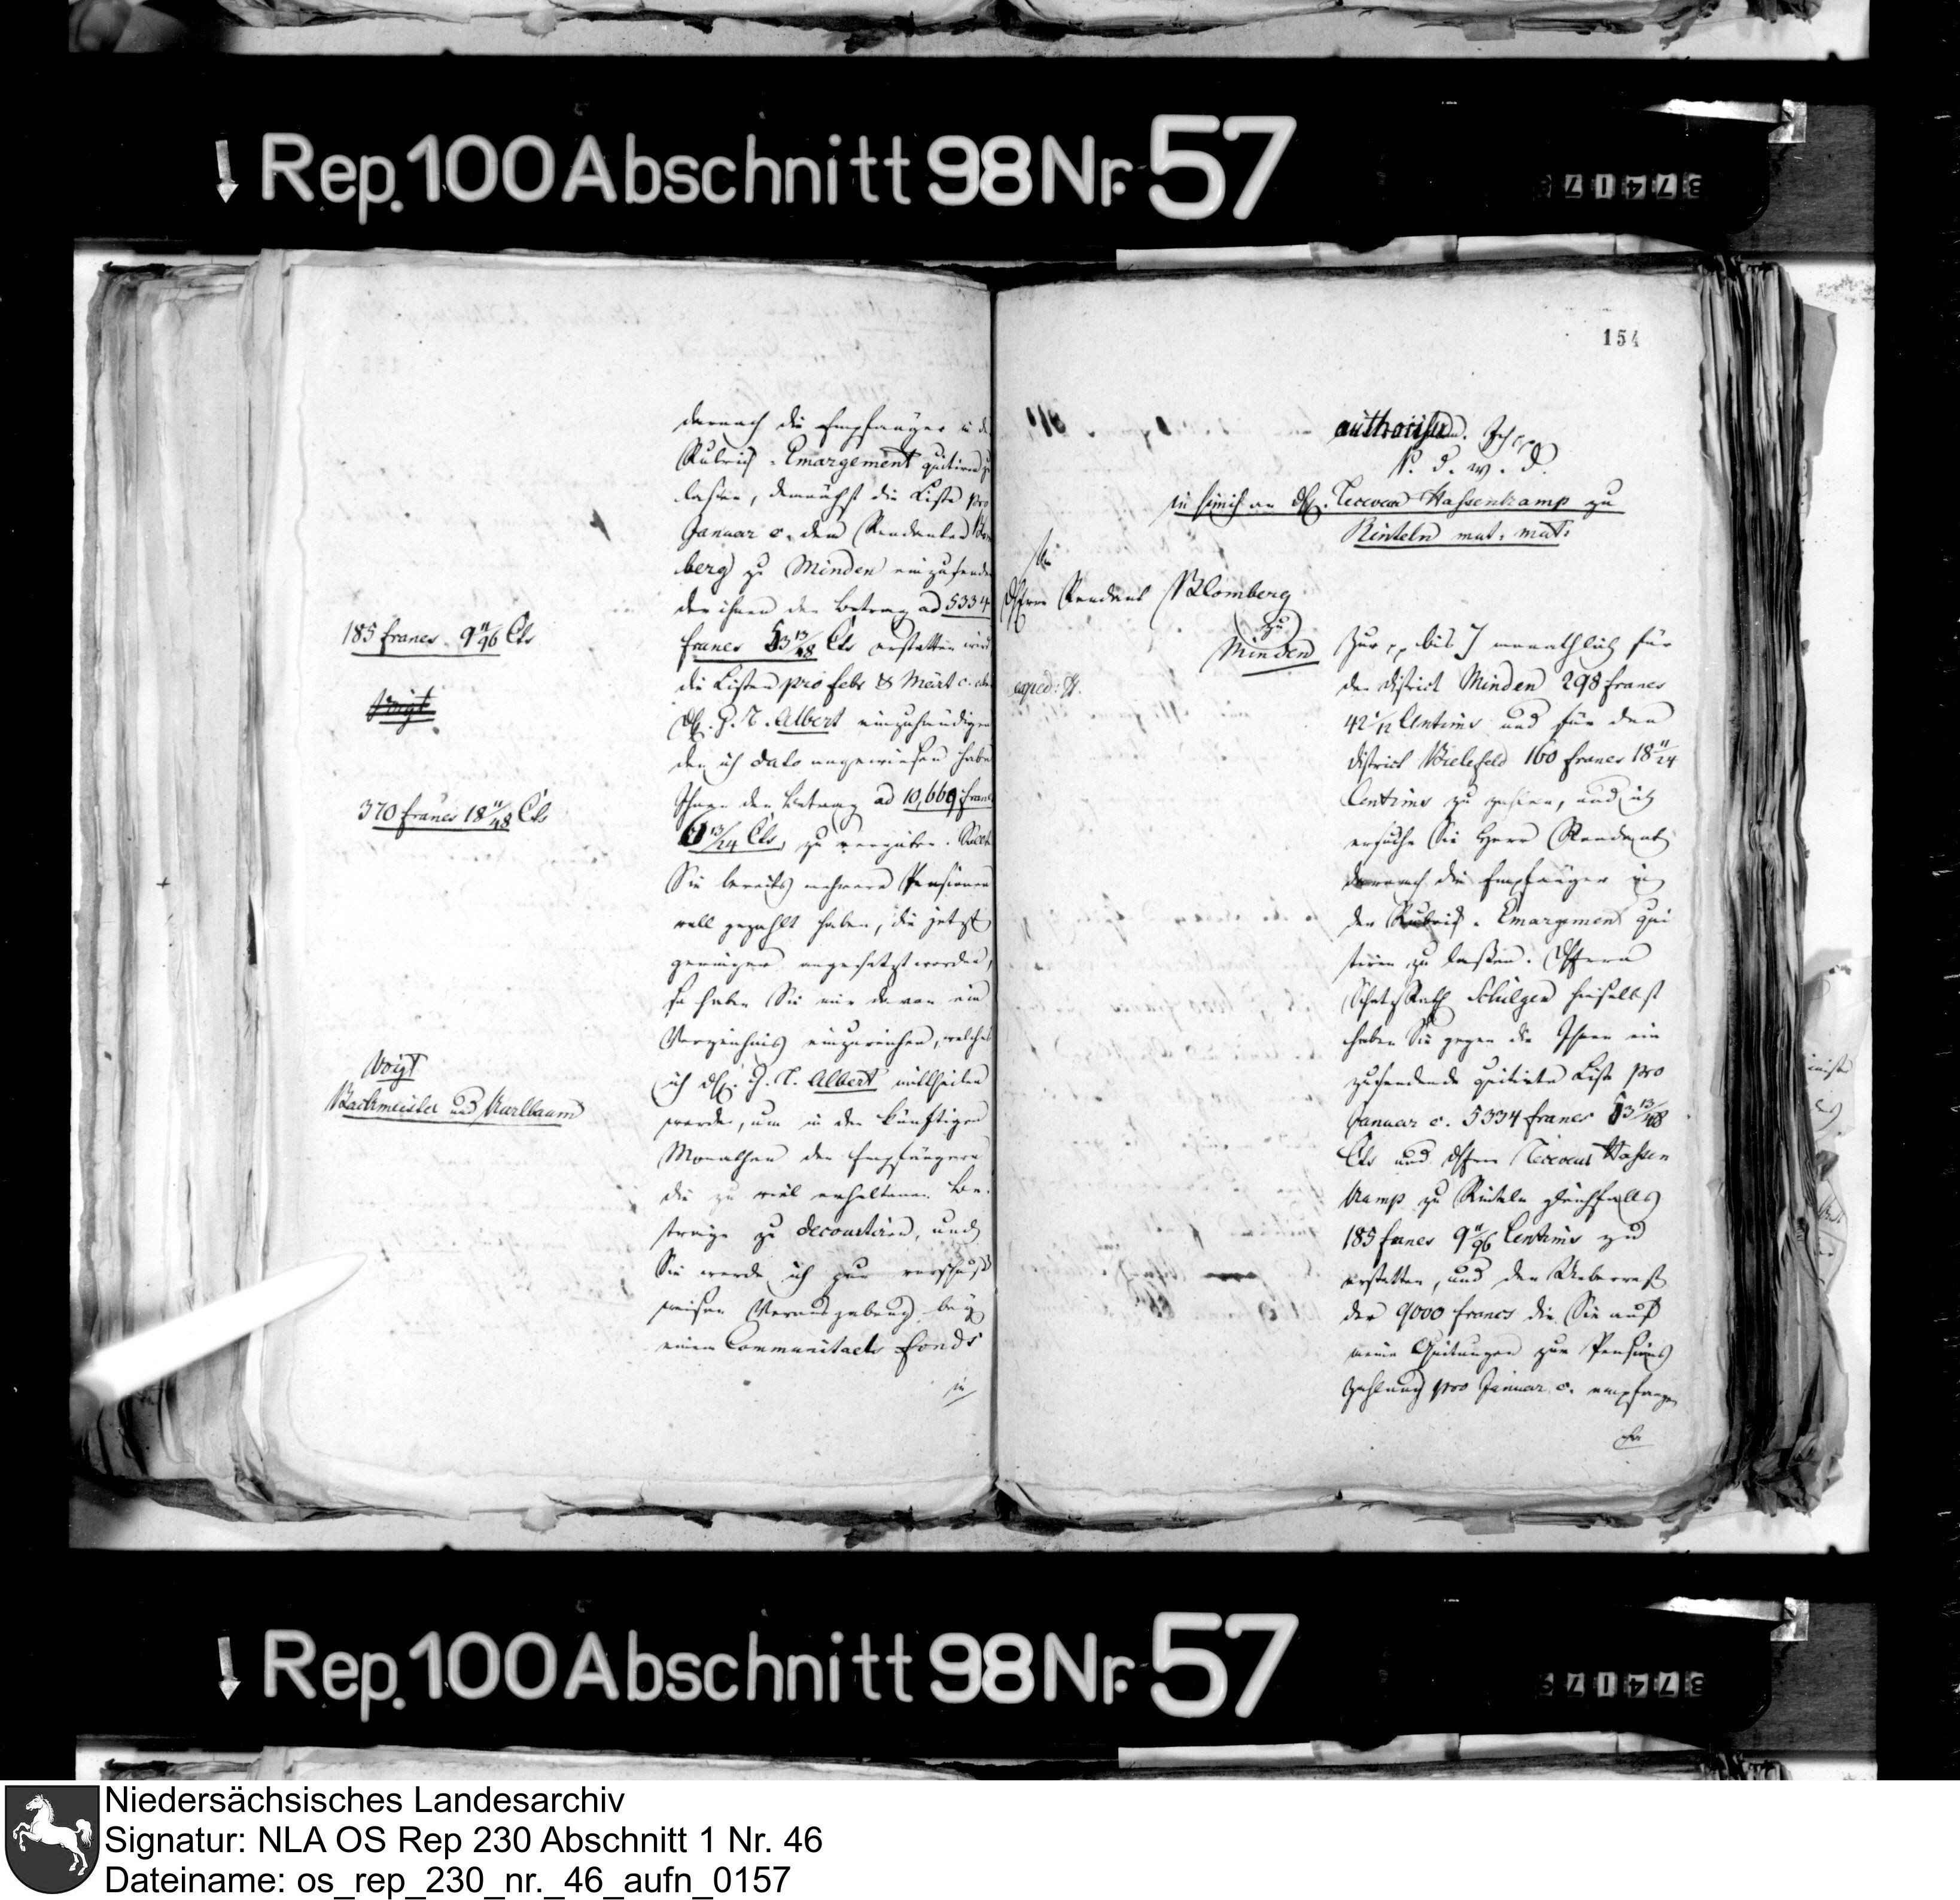 Rep. 100 Abschnitt 98 Nr. 57
darnach die Empfänger in der
Rubrick - Emargement quitiren zu
lassen, demnächst die Liste pro
Januar c. dem Rendanten Blom
berg zu Minden einzusenden
der ihnen den Betrag ad 5334
francs 53 13/48 Cts erstatten wird
die Listen pro febr & Mart c. aber
H. G. R. Albert einzuhändigen
den ich dato angewiesen habe
Ihnen den Betrag ad 10,669 franc
6 13/24 Cts, zu vergüten. Sollten
Sie bereits mehrere Pensionen
voll gezahlt haben, die jetzt
geringer angesetzt worden,
so haben Sie mir davon ein
Verzeichnis einzureichen, welches
ich H. G. R. Albert mittheilen
werde, um in den künftigen
Monathen den Empfängern
die zu viel erhaltenen Be-
träge zu decourtiren, und
Sie werde ich zur vorschuß
weisen Verausgabung bey
einem Communitaets fonds
in
185 francs. 9 11/96 Cts
Voigt
370 francs 18 11/48 Cts
Voigt
Backmeister und Marlbaum
154
authorisiren. Ich pp
P. d. w. d.
in simili an H. Receveur Hassenkamp zu
Rinteln mut. mut.
An
Herrn Rendant Blomberg
zu
Minden
exped:
Zur pp bis / monathlich für
den District Minden 298 francs
42 1/12 Centims und für den
District Bielefeld 160 francs 18 11/24
Centims zu zahlen, und ich
ersuche Sie Herr Rendant
darnach die Empfänger in
der Rubrick - Emargement qui
tiren zu lassen. Herrn
Schatz Rath Schülgen hieselbst
haben Sie gegen die Ihnen ein
zusendende quitirte Liste pro
Januar c. 5334 francs 53 13/48
Cts und Herrn Receveur Hassen
kamp zu Rinteln gleichfalls
185 francs 9 11/96 Centims zu
erstatten, und den Ueberrest
der 9000 francs die Sie auf
meine Quitungen zur Pensions
Zahlung pro Januar c. empfangen
Rep. 100 Abschnitt 98 Nr. 57
Niedersächsisches Landesarchiv
Signatur: NLA OS Rep 230 Abschnitt 1 Nr. 46
Dateiname: os_rep_230_nr._46_aufn_0157